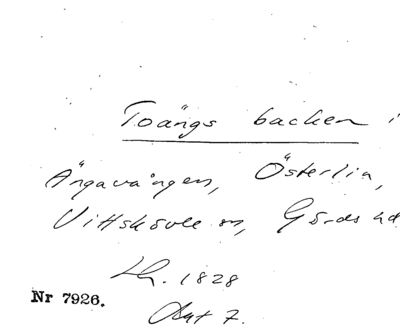 Toängs backen i
Ängavången, Österlin,
Vittskövle sn, Gärds hd
Lh. 1828
Nr 7926.
Akt 7.